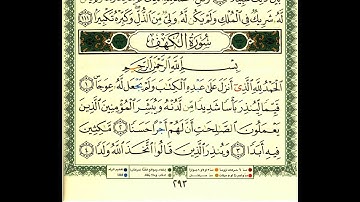 لَّهُۥ شَرِيكٌ فِي ٱلْمُلْكِ وَلَمْ يَكُن لَّهُۥ وَلِيٌّ مِّنَ ٱلذُّلِّ وَكَبِّرْهُ تَكْبِيرًۢا ١١١
سُورَةُ ٱلْكَهْفِ
بِسْمِ ٱللَّهِ ٱلرَّحْمَٰنِ ٱلرَّحِيمِ
ٱلْحَمْدُ لِلَّهِ ٱلَّذِيٓ أَنزَلَ عَلَىٰ عَبْدِهِ ٱلْكِتَٰبَ وَلَمْ يَجْعَل لَّهُۥ عِوَجَا ۜ ١
قَيِّمًا لِّيُنذِرَ بَأْسًا شَدِيدًا مِّن لَّدُنْهُ وَيُبَشِّرَ ٱلْمُؤْمِنِينَ ٱلَّذِينَ
يَعْمَلُونَ ٱلصَّٰلِحَٰتِ أَنَّ لَهُمْ أَجْرًا حَسَنًا ٢ مَّٰكِثِينَ
فِيهِ أَبَدًا ٣ وَيُنذِرَ ٱلَّذِينَ قَالُوا۟ ٱتَّخَذَ ٱللَّهُ وَلَدًا ٤
٢٩٣